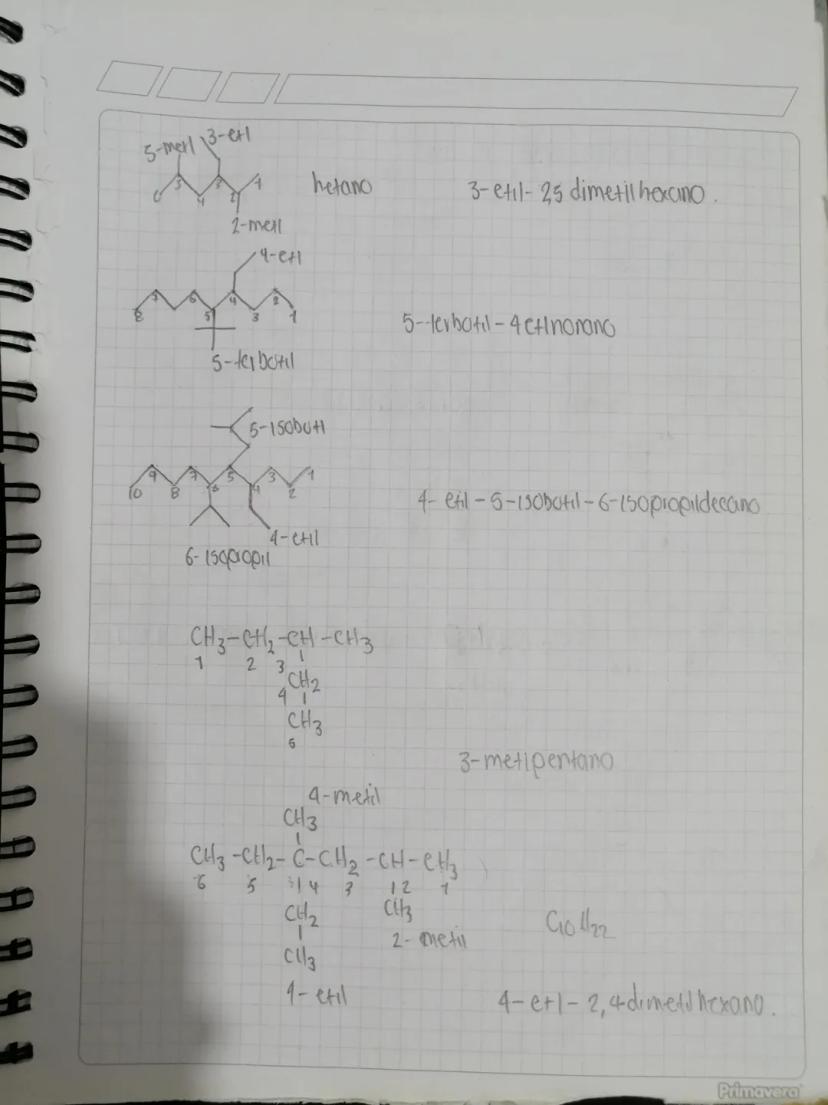 5-metl 3-etl
5 3 1
6 4 2
hetano
3-etil-2,5 dimetilhexano.
2-metl
4-etl
7 6 4 2
8 5 3 1
5-terbotil-4etlnonano
5-terbotil
5-isobutl
9 7 5 3 1
10 8 6 4 2
4-etil-5-isobotil-6-isopropildecano
4-etil
6-isopropil
CH3-CH2-CH-CH3
1 2 3
CH2
4
CH3
5
3-metipentano
4-metil
CH3
CH3-CH2-C-CH2-CH-CH3
6 5 4 3 2 1
CH2 CH3
C10H22
2-metil
CH3
4-etil
4-etl-2,4dimetilhexano.
Primavera